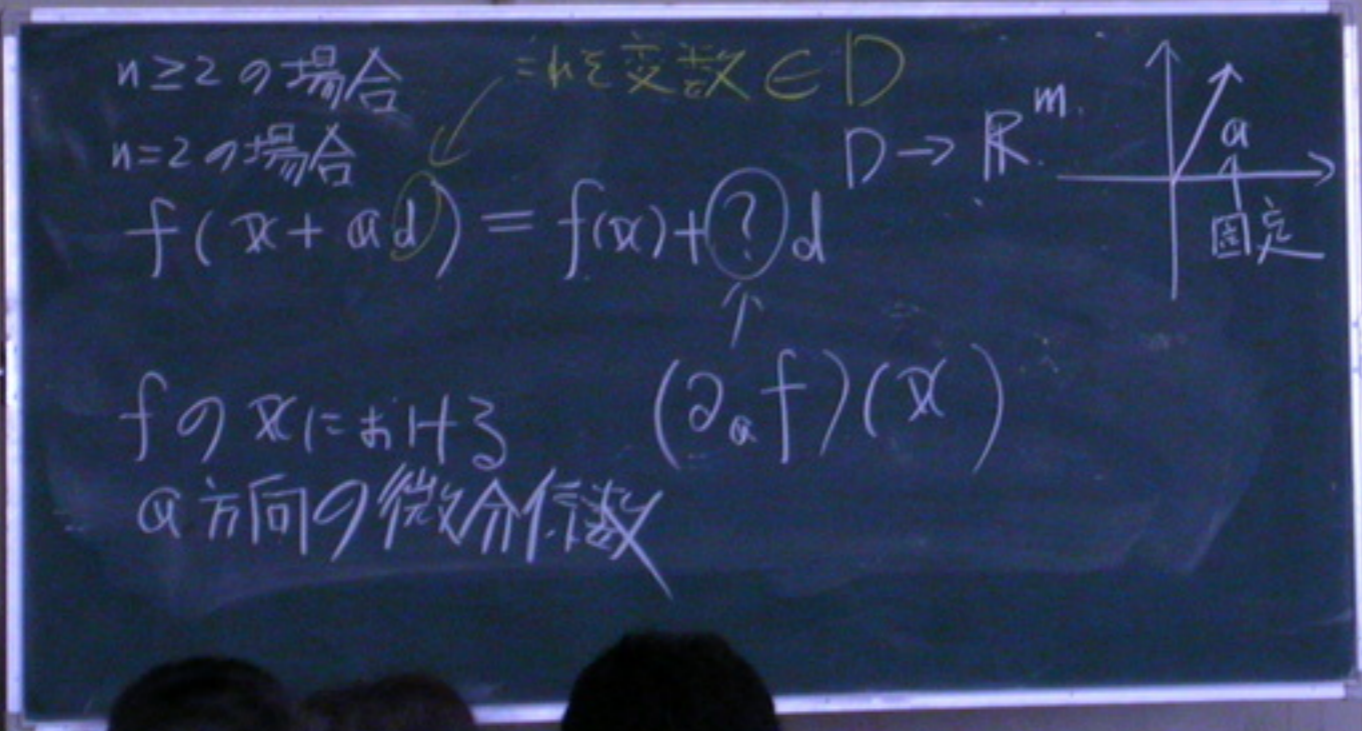 n≥2の場合
これを変数∈D
n=2の場合
D→ℝᵐ.
f(𝕩+𝕒d)=f(𝕩)+?d
𝕒
固定
(∂𝕒f)(𝕩)
fの𝕩における
𝕒方向の微分係数